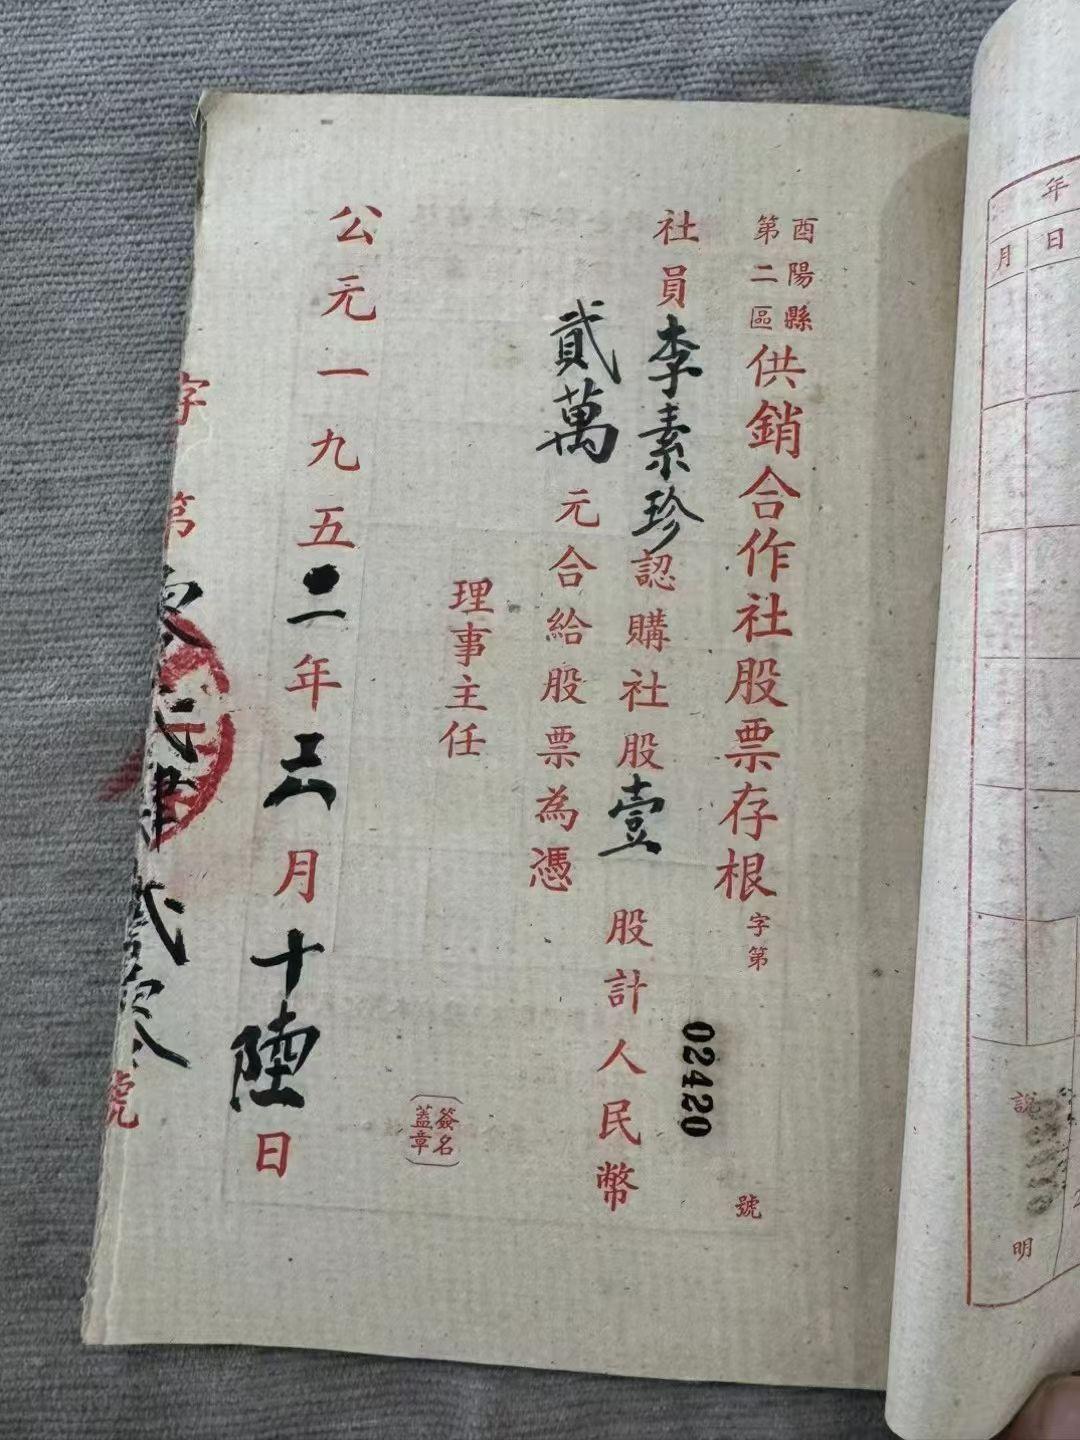 酉陽縣
第二區
供銷合作社股票存根字第02420號
社員李素珍認購社股壹股計人民幣
貳萬元合給股票為憑
理事主任
簽名
蓋章
公元一九五二年三月十陸日
字第零貳肆貳零號
年
月日
說明